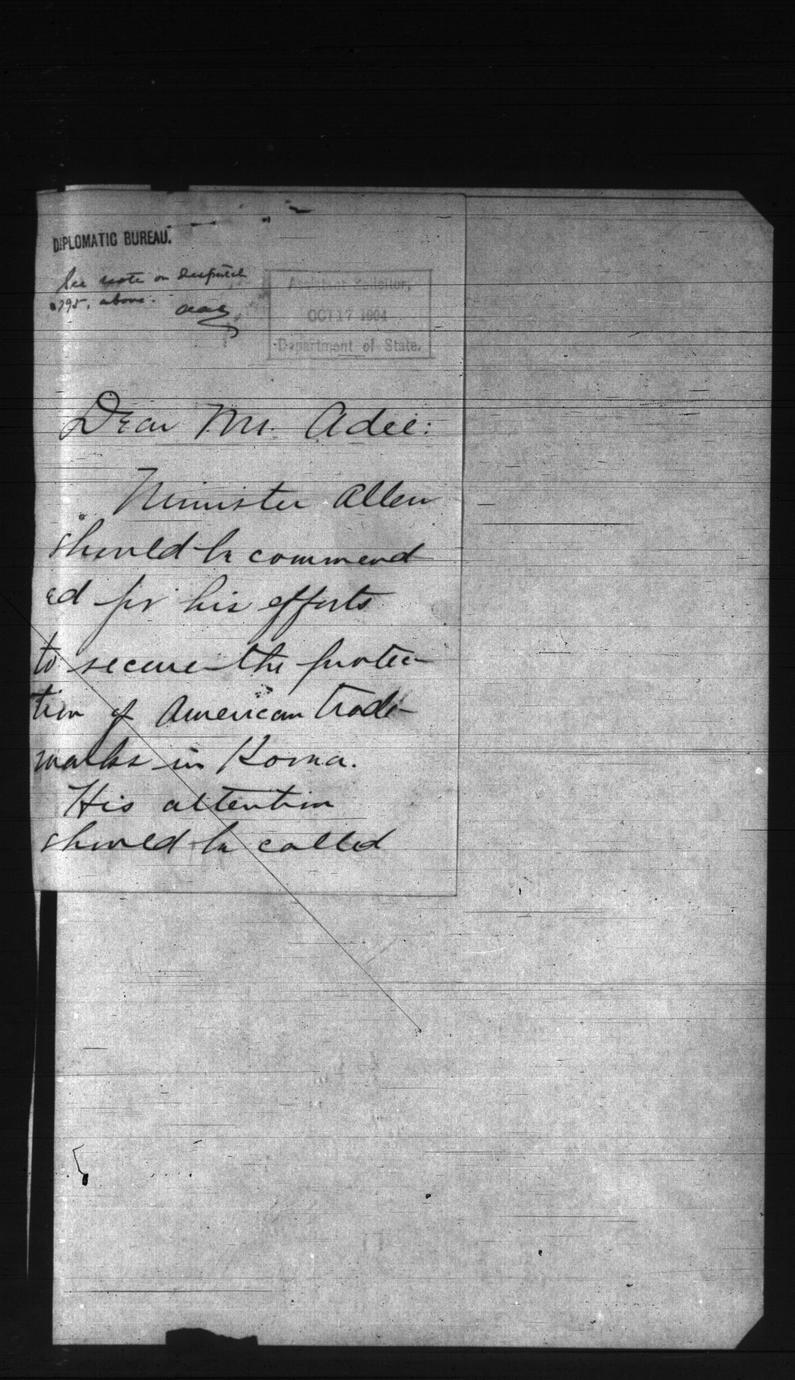 DIPLOMATIC BUREAU.
See note on despatch
#795, above.
Assistant Solicitor,
OCT 17 1904
Department of State.
Dear Mr. Adee:
Minister Allen
should be commend
ed for his efforts
to secure the protec-
tion of American trade-
marks in Korea.
His attention
should be called